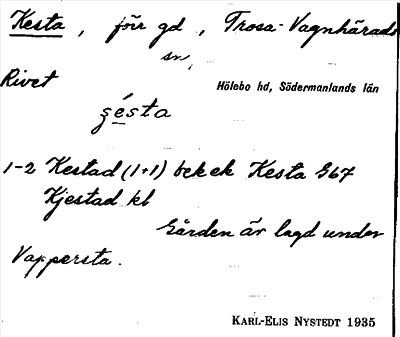 Kesta, förr gd, Trosa-Vagnhärads
sn,
Rivet
Hölebo hd, Södermanlands län
ʂésta
1-2 Kestad (1+1) bek ek Kesta G67
Kjestad kl
Gården är lagd under
Vappersta.
KARL-ELIS NYSTEDT 1935